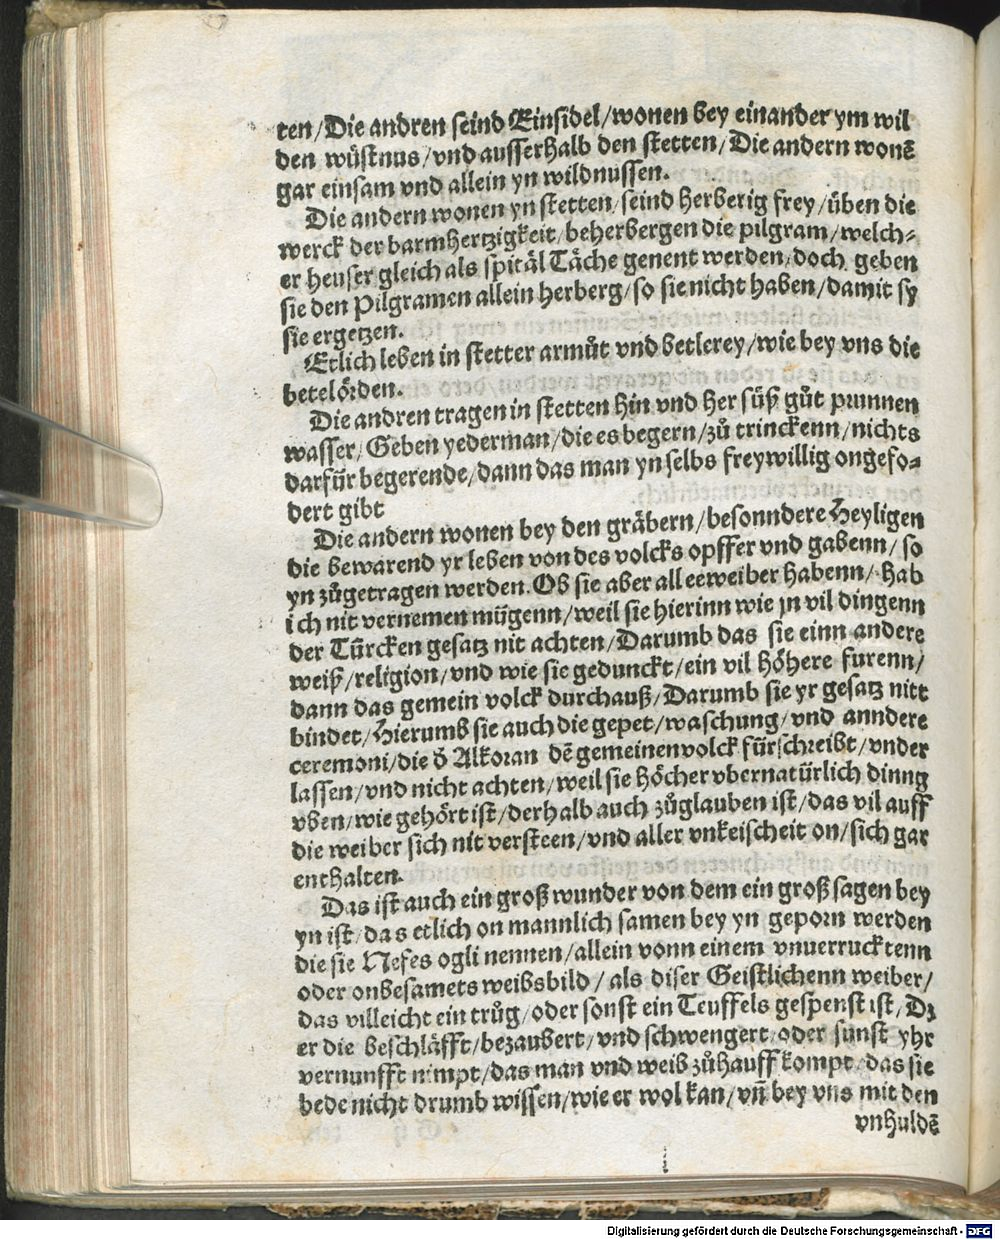 ten/Die andren seind Einsidel/wonen bey einander ym wil
den wüstnus/vnd ausserhalb den stetten/Die andern wonē
gar einsam vnd allein yn wildnussen.
Die andern wonen yn stetten/seind herberig frey/üben die
werck der barmhertzigkeit/beherbergen die pilgram/welch⸗
er heuser gleich als spitäl Täche genent werden/doch geben
sie den Pilgramen allein herberg/so sie nicht haben/damit sy
sie ergetzen.
Etlich leben in stetter armůt vnd betlerey/wie bey vns die
betelörden.
Die andren tragen in stetten hin vnd her süß gůt prunnen
wasser/Geben yederman/die es begern/zů trinckenn/nichts
darfür begerende/dann das man yn selbs freywillig ongefo⸗
dert gibt
Die andern wonen bey den gräbern/besonndere Heyligen
die bewarend yr leben von des volcks opffer vnd gabenn/so
yn zůgetragen werden. Ob sie aber all eeweiber habenn/hab
ich nit vernemen mügenn/weil sie hierinn wie jn vil dingenn
der Türcken gesatz nit achten/Darumb das sie einn andere
weiß/religion/vnd wie sie gedunckt/ein vil höhere furenn/
dann das gemein volck durchauß/Darumb sie yr gesatz nitt
bindet/Hierumb sie auch die gepet/waschung/vnd anndere
ceremoni/die d̓ Alkoran dē gemeinen volck fürschreibt/vnder
lassen/vnd nicht achten/weil sie höcher vbernatürlich dinng
vben/wie gehört ist/derhalb auch zůglauben ist/das vil auff
die weiber sich nit versteen/vnd aller vnkeischeit on/sich gar
enthalten.
Das ist auch ein groß wunder von dem ein groß sagen bey
yn ist/das etlich on mannlich samen bey yn geporn werden
die sie Nefes ogli nennen/allein vonn einem vnuerrucktenn
oder onbesamets weibsbild/als diser Geistlichenn weiber/
das villeicht ein trůg/oder sonst ein Teuffels gespenst ist/Dz
er die beschläfft/bezaubert/vnd schwengert/oder sunst yhr
vernunfft nimpt/das man vnd weib zůhauff kompt/das sie
bede nicht drumb wissen/wie er wol kan/vñ bey vns mit den
vnhuldē
Digitalisierung gefördert durch die Deutsche Forschungsgemeinschaft - DFG